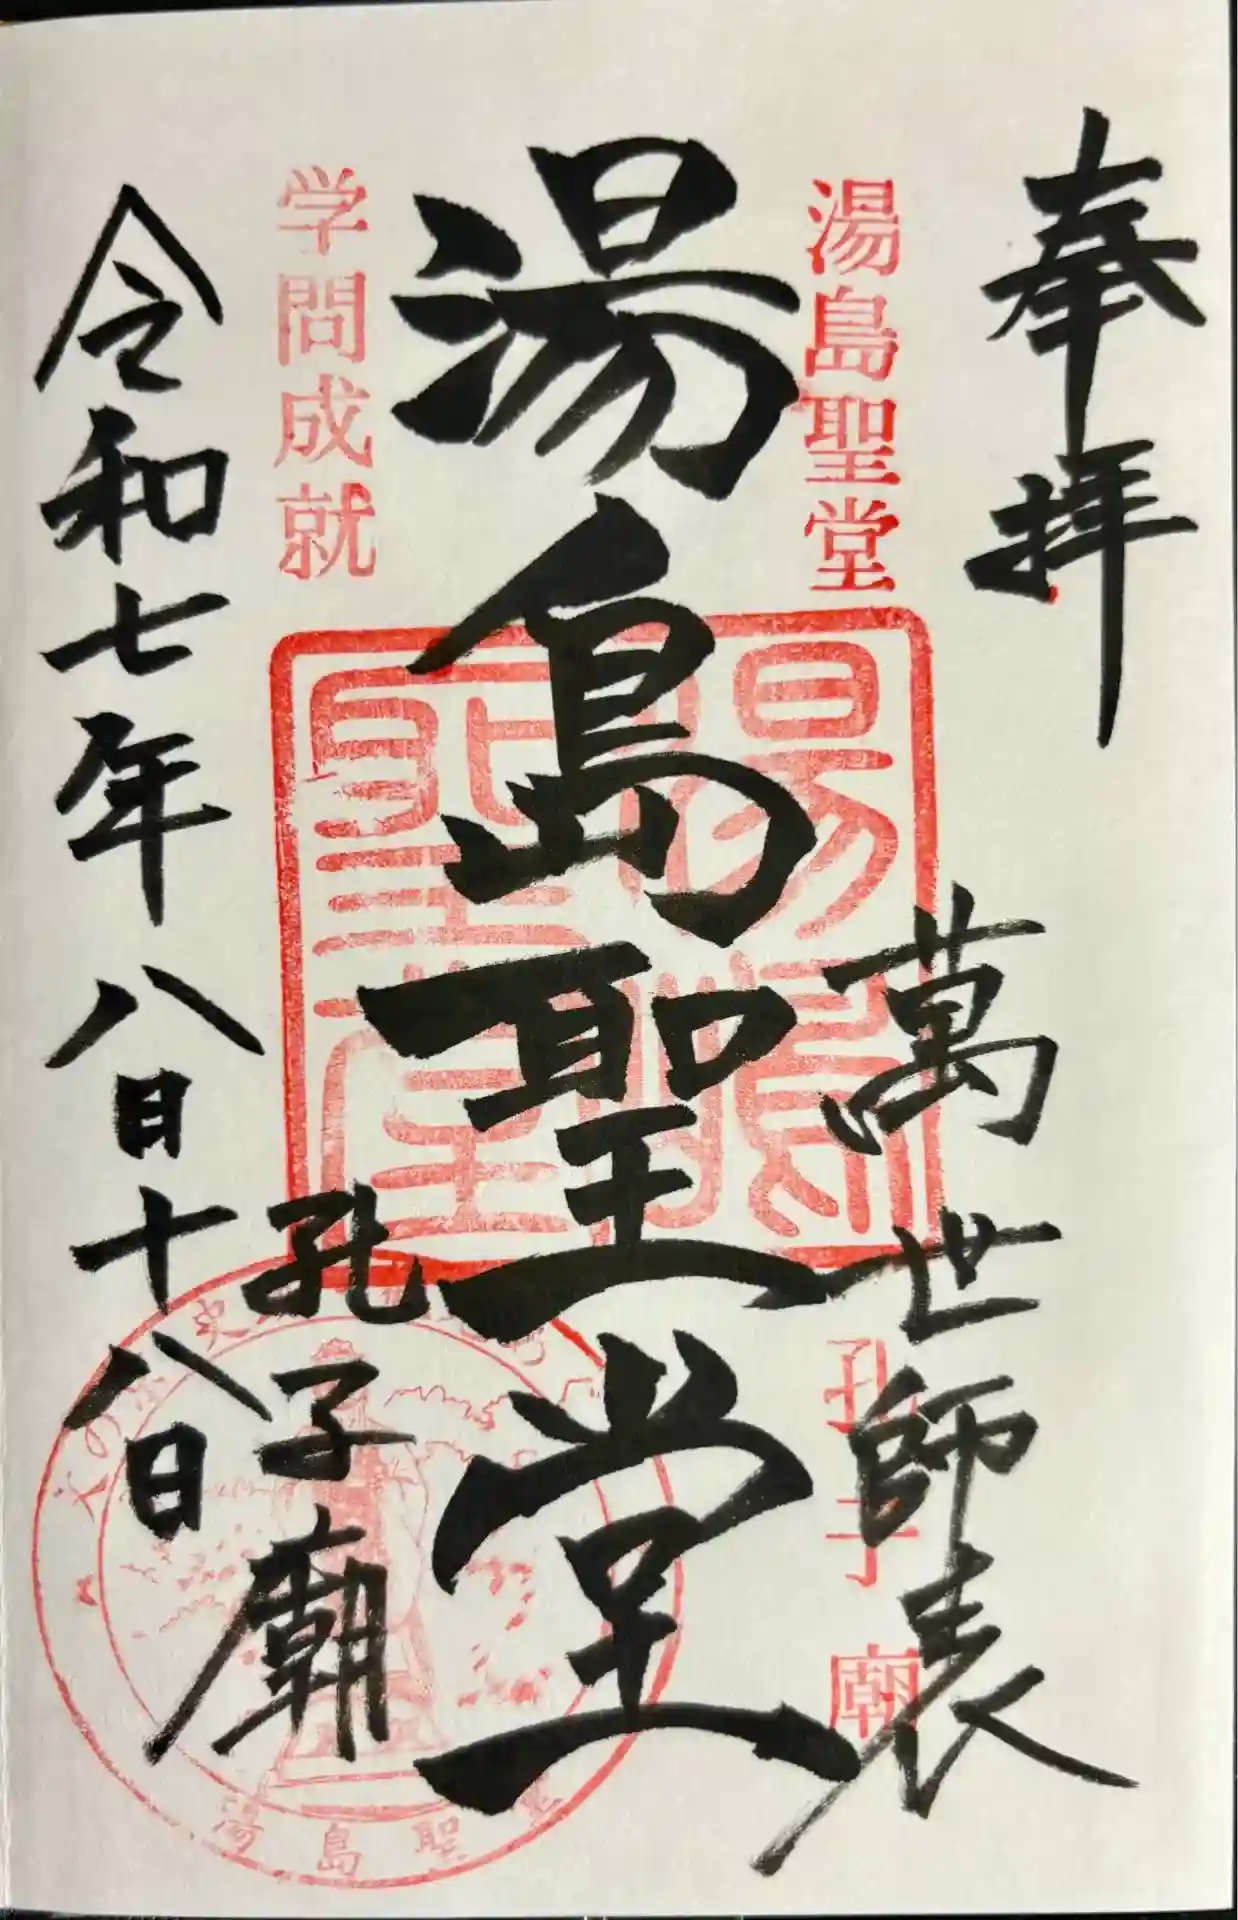 奉拝
萬世師表
湯島聖堂
孔子廟
湯島聖堂
湯島聖堂
学問成就
孔子廟
令和七年八月十八日
湯島聖